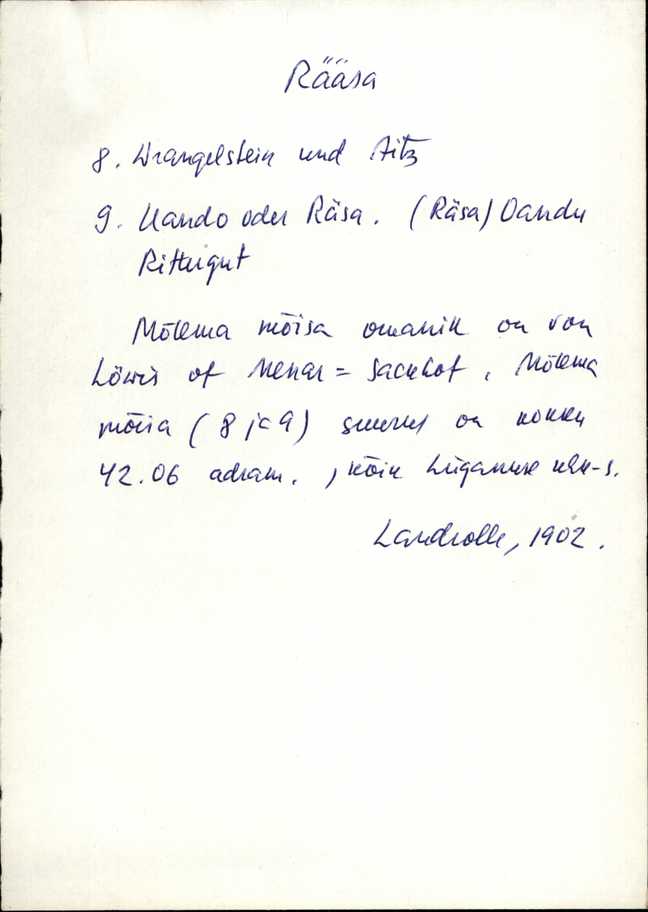 Rääsa
8. Wrangelstein und Aitz
9. Uando oder Räsa. (Räsa) Oandu
Rittergut
Mõlema mõisa omanik on von
Löwis of Menar = . Mõlema
mõisa (8 ja 9) suurus on kokku
42.06 adram. , kõik Lüganuse khk-s.
Landrolle, 1902.